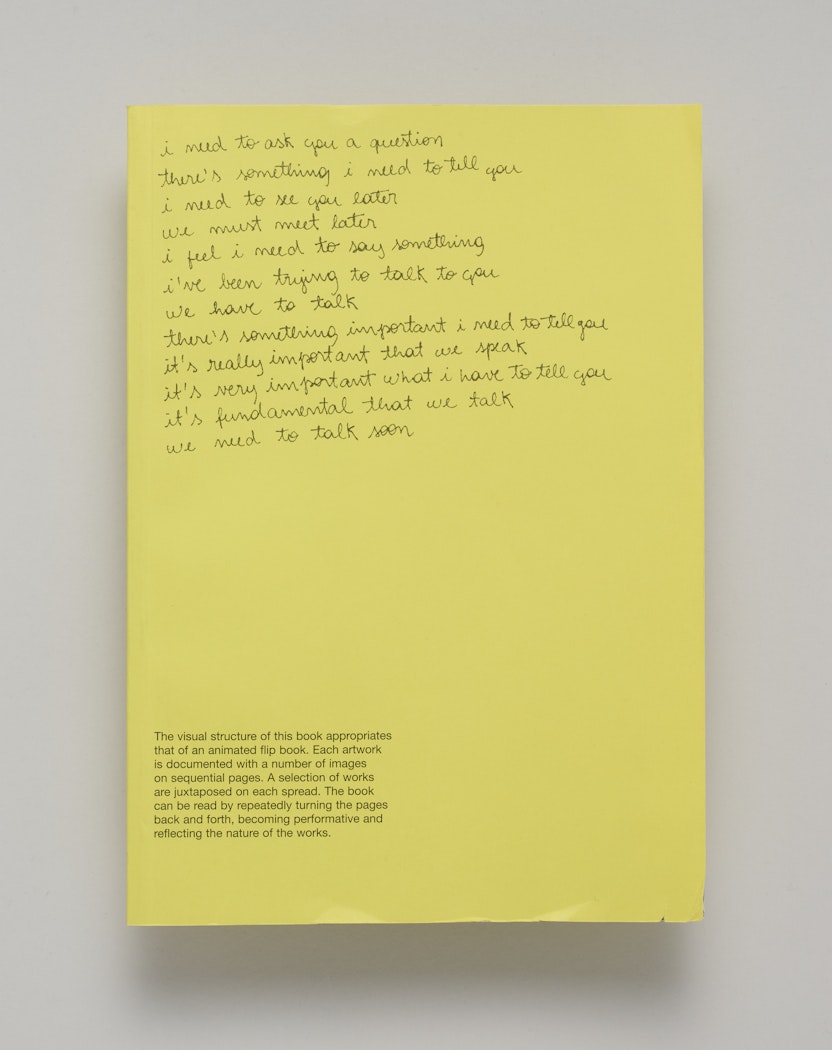 i need to ask you a question
there's something i need to tell you
i need to see you later
we must meet later
i feel i need to say something
i've been trying to talk to you
we have to talk
there's something important i need to tell you
it's really important that we speak
it's very important what i have to tell you
it's fundamental that we talk
we need to talk soon
The visual structure of this book appropriates
that of an animated flip book. Each artwork
is documented with a number of images
on sequential pages. A selection of works
are juxtaposed on each spread. The book
can be read by repeatedly turning the pages
back and forth, becoming performative and
reflecting the nature of the works.